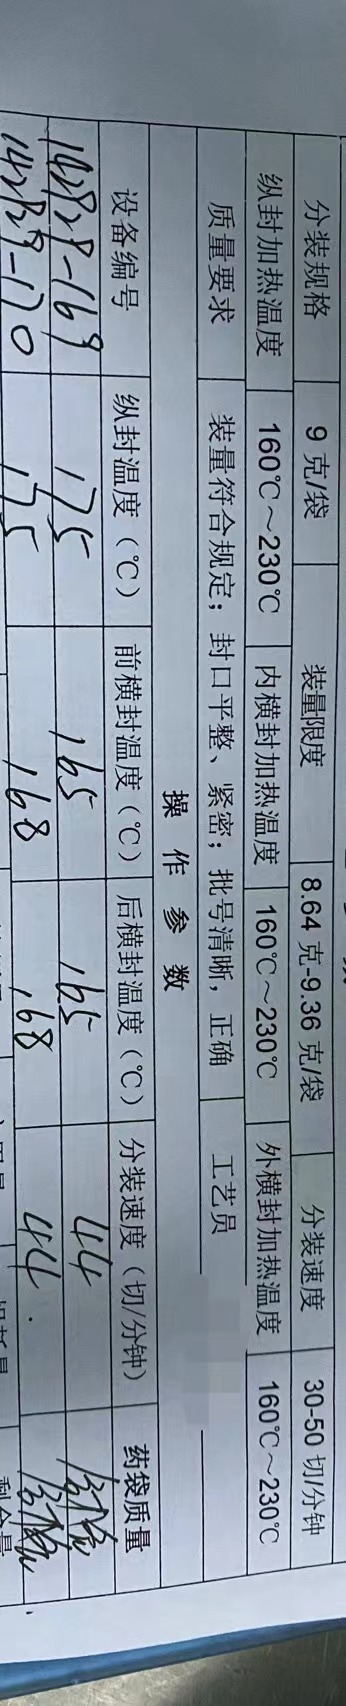 分装规格 9 克/袋 装量限度 8.64 克-9.36 克/袋 分装速度 30-50 切/分钟
纵封加热温度 160℃～230℃ 内横封加热温度 160℃～230℃ 外横封加热温度 160℃～230℃
质量要求 装量符合规定；封口平整、紧密；批号清晰，正确 工艺员
操 作 参 数
设备编号 纵封温度（℃） 前横封温度（℃） 后横封温度（℃） 分装速度（切/分钟） 药袋质量
175 165 165 44
175 168 168 44